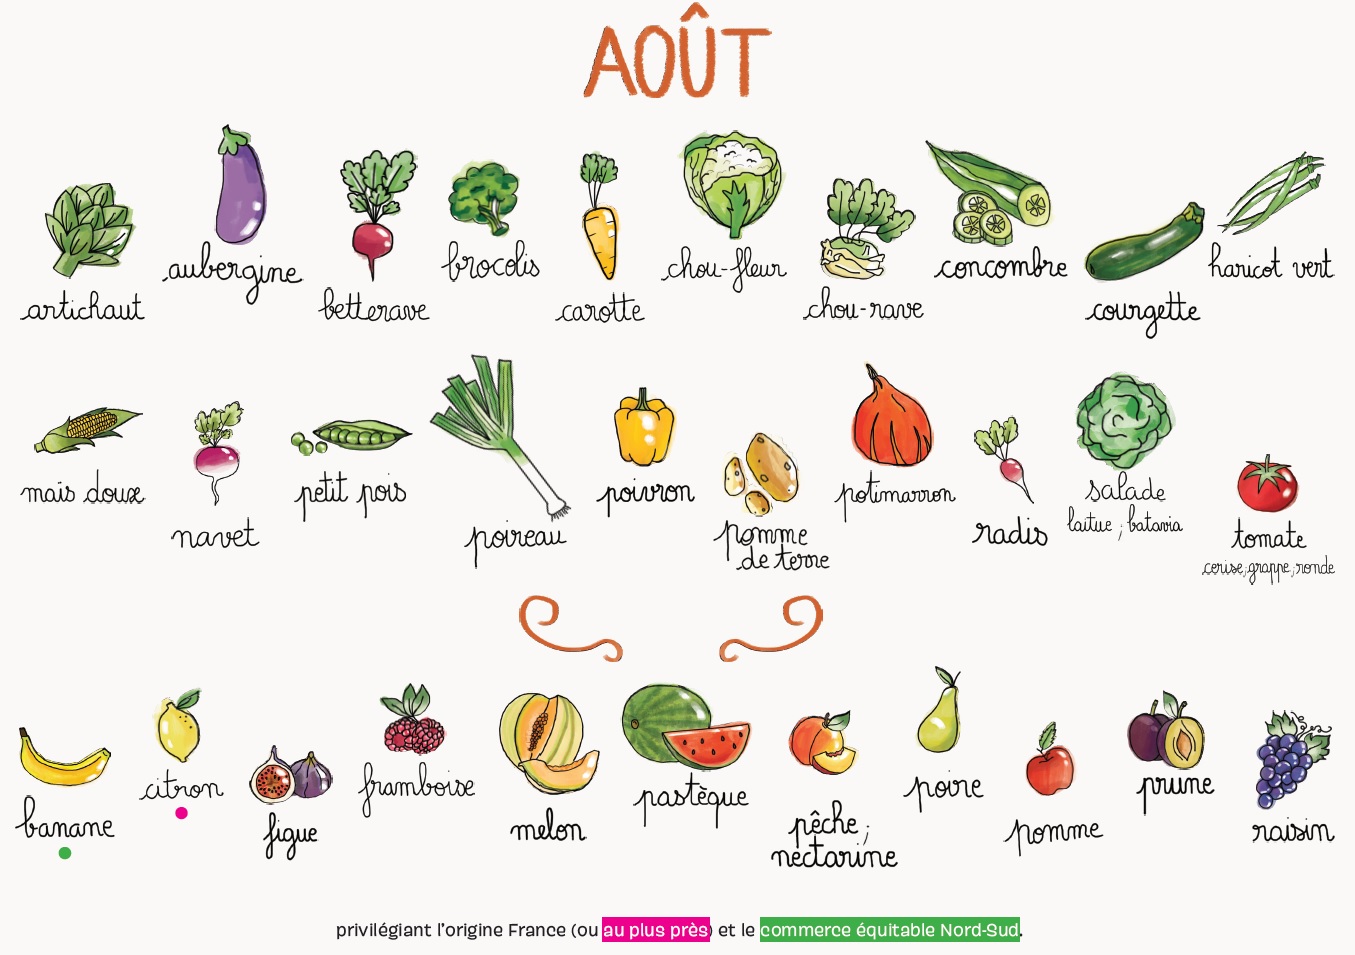 AOÛT
artichaut
aubergine
betterave
brocolis
carotte
chou-fleur
chou-rave
concombre
courgette
haricot vert
maïs doux
navet
petit pois
poireau
poivron
pomme
de terre
potimarron
radis
salade
laitue ; batavia
tomate
cerise ; grappe ; ronde
banane
citron
figue
framboise
melon
pastèque
pêche ;
nectarine
poire
pomme
prune
raisin
privilégiant l'origine France (ou au plus près) et le commerce équitable Nord-Sud.